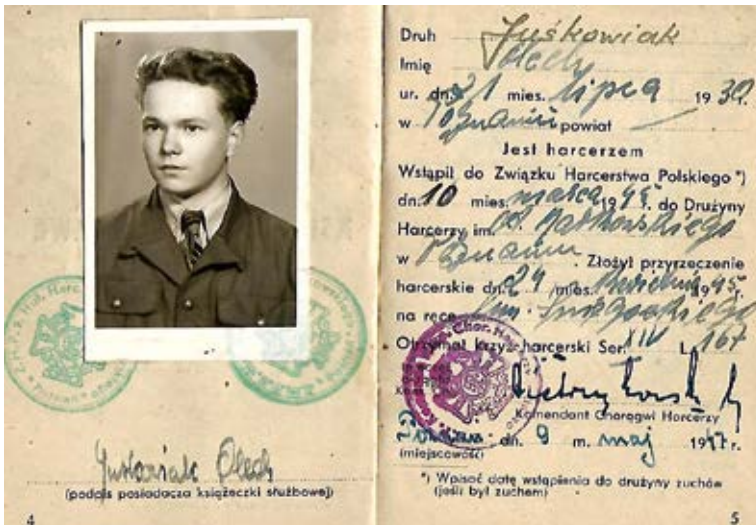 Juśkowiak Olech
(podpis posiadacza książeczki służbowej)
4
Druh Juśkowiak
Imię Olech
ur. dn. 21 mies. lipca 1930
w Poznaniu powiat —
Jest harcerzem
Wstąpił do Związku Harcerstwa Polskiego *)
dn. 10 mies. marca 1945. do Drużyny
Harcerzy im.
w Poznaniu. Złożył przyrzeczenie
harcerskie dn. 24 mies. kwietnia 1945.
na ręce
Otrzymał krzyż harcerski Ser. XIV L. 167
Komendant Chorągwi Harcerzy
Poznań dn. 9 m. maj 1947 r.
(miejscowość)
*) Wpisać datę wstąpienia do drużyny zuchów
(jeśli był zuchem)
5